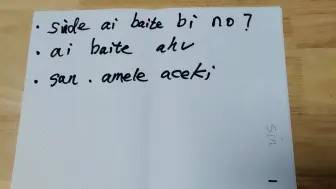 · sinde ai baite bi no?
· ai baite akv
· san. amele aceki